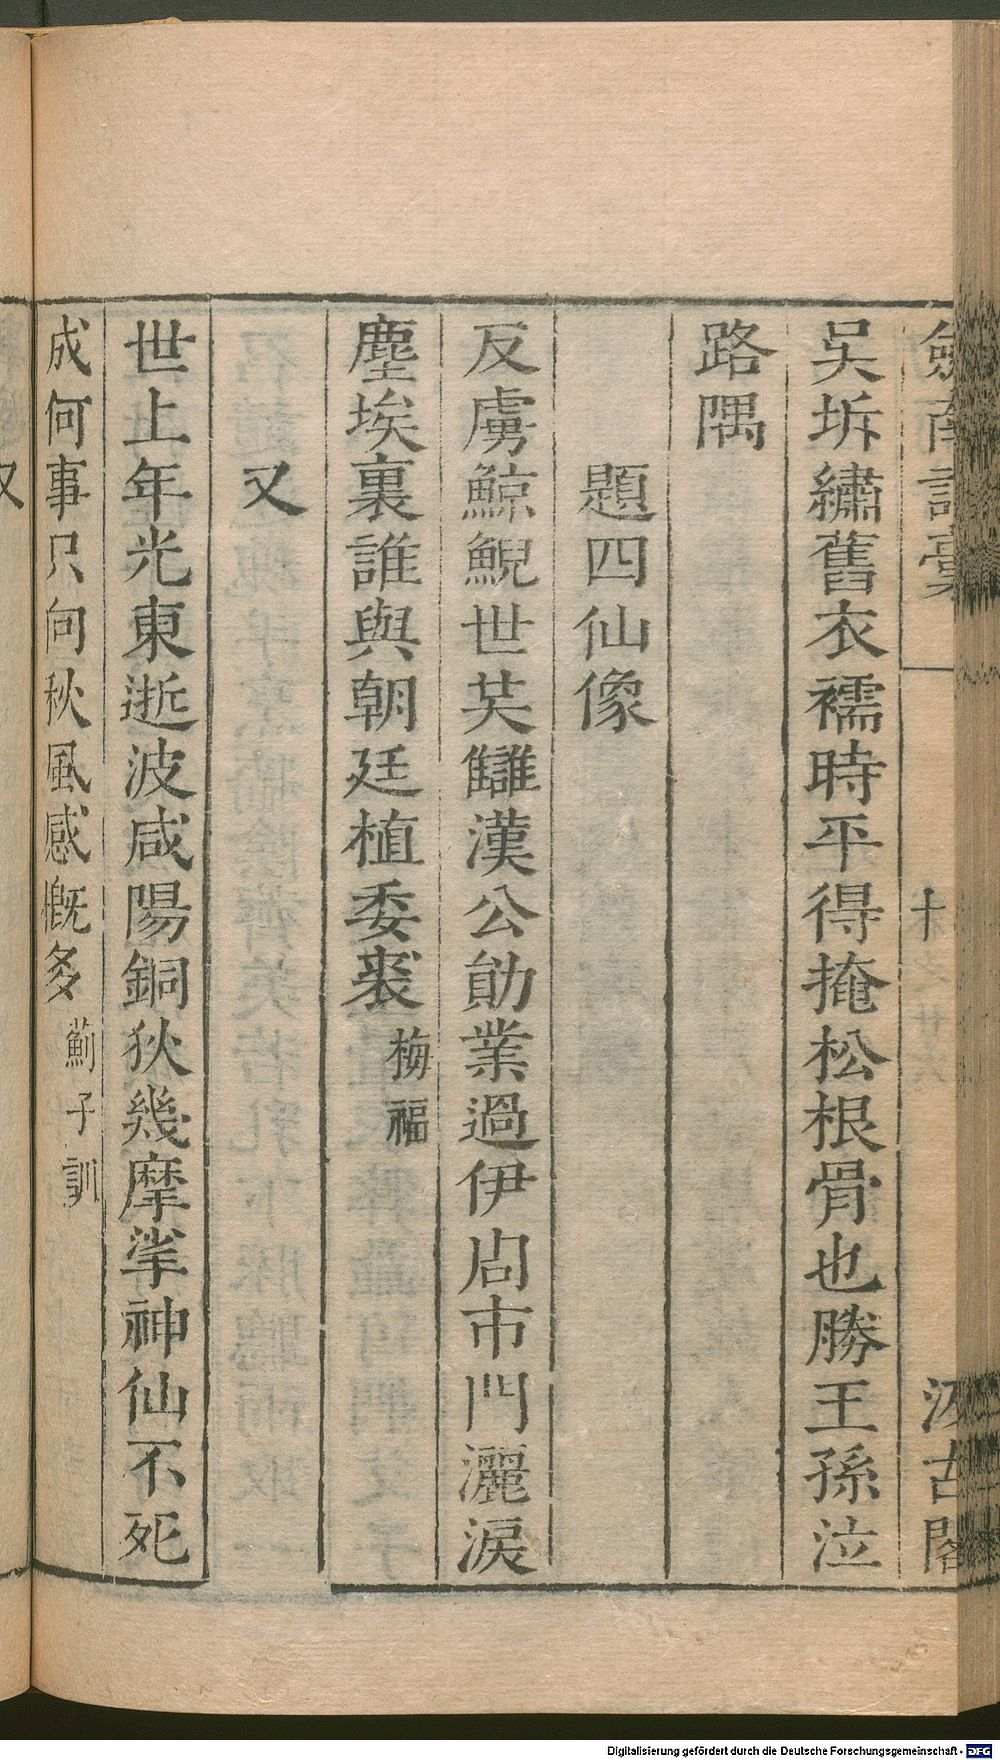 劍南詩稾 汲古閣
吳坼繡舊衣襦時平得掩松根骨也勝王孫泣
路隅
題四仙像
反虜鯨鯢世共讎漢公勛業過伊周市門灑淚
塵埃裏誰與朝廷植委裘梅福
又
世上年光東逝波咸陽銅狄幾摩挲神仙不死
成何事只向秋風感慨多薊子訓
又
Digitalisierung gefördert durch die Deutsche Forschungsgemeinschaft - DFG